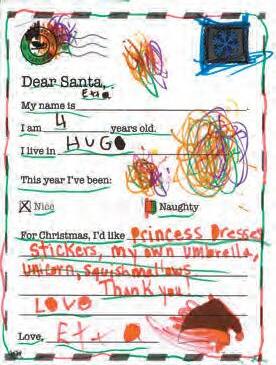 Dear Santa,
Etta
My name is
I am 4 years old.
I live in HUGO
This year I've been:
Nice Naughty
For Christmas, I'd like Princess Dresses
stickers, my own umbrella,
unicorn, squishmallows
Thank you!
LOVE
Love, Etta